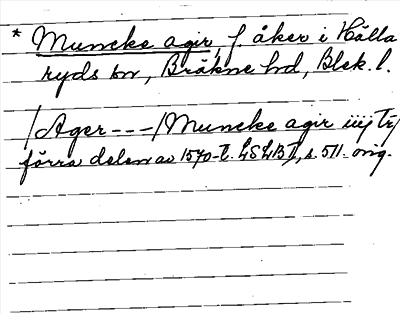 * Muncke agir, f. åker i Hålla
ryds sn, Bräkne hd, Blek. l.
/Ager---/Muncke agir iiij Tr/
förra delen av 1570-t. LSLBT, s. 511. orig.